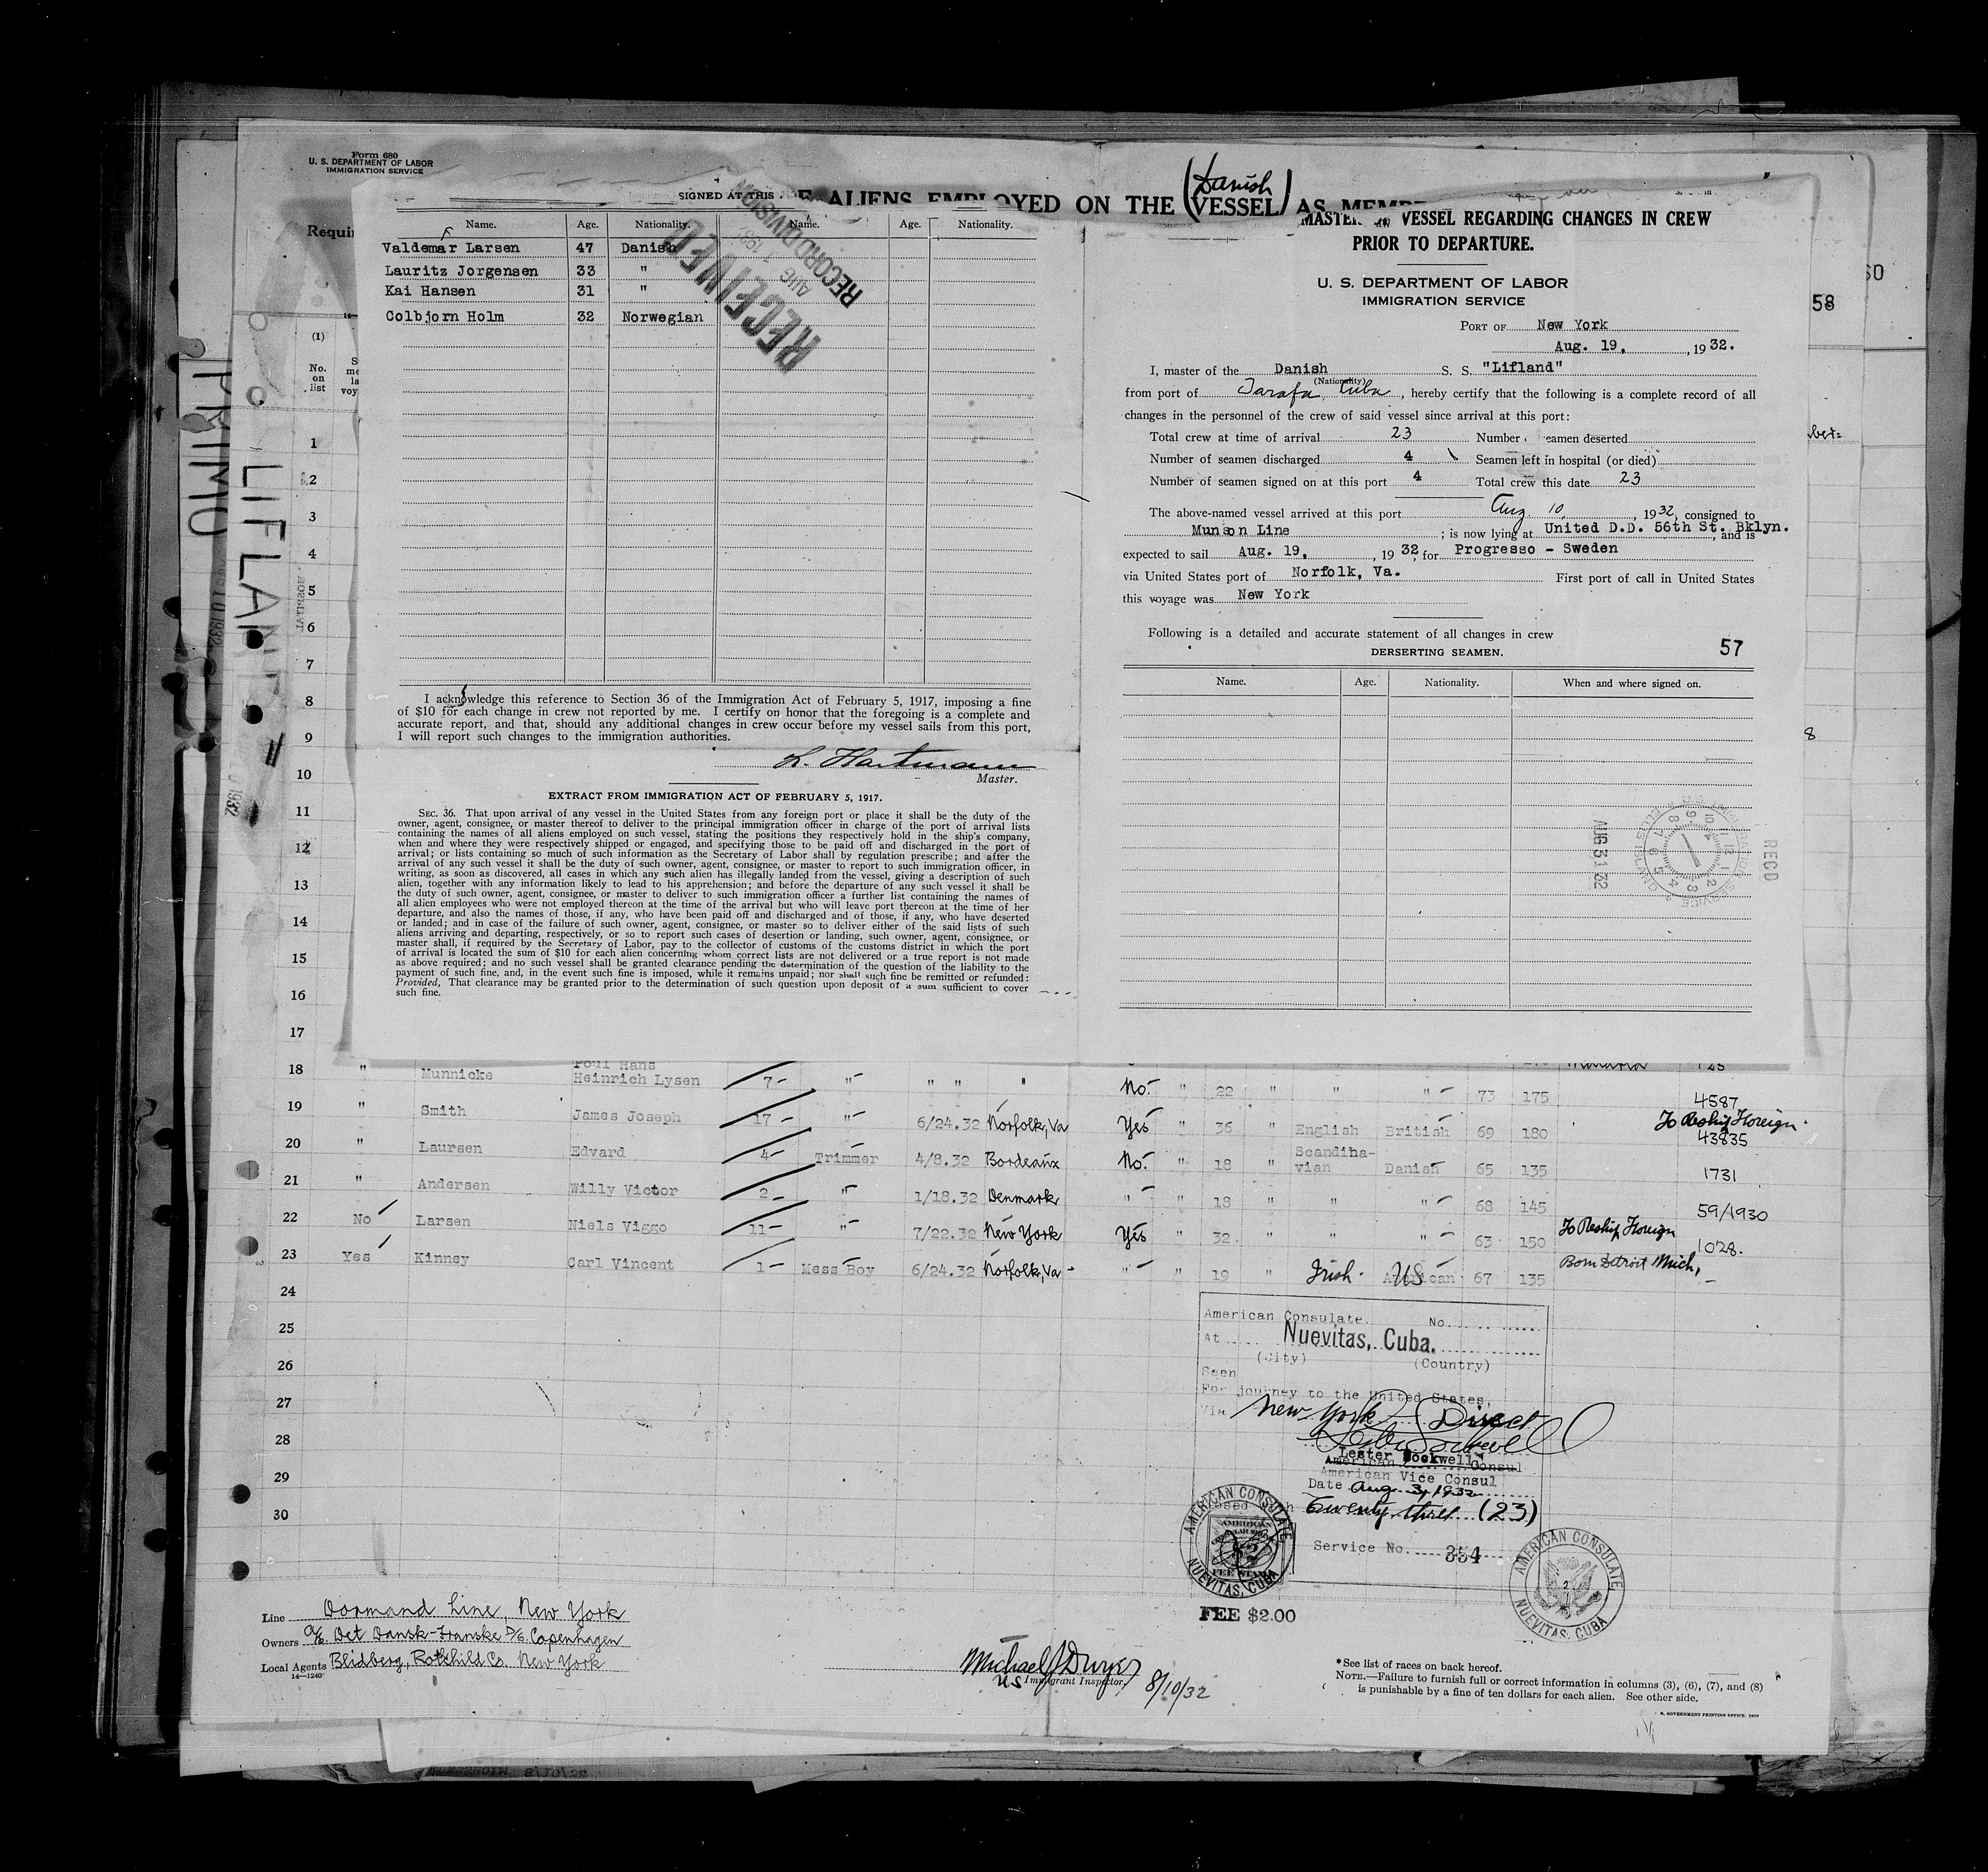 Form 680
U. S. DEPARTMENT OF LABOR
IMMIGRATION SERVICE
ALIENS EMPLOYED ON THE (Danish VESSEL) AS
SIGNED AT THIS
Name. Age. Nationality. Name. Age. Nationality.
Valdemar Larsen 47 Danish
Lauritz Jorgensen 33 "
Kai Hansen 31 "
Colbjorn Holm 32 Norwegian
RECEIVED
AUG 1932
RECORD DIVISION
I acknowledge this reference to Section 36 of the Immigration Act of February 5, 1917, imposing a fine
of $10 for each change in crew not reported by me. I certify on honor that the foregoing is a complete and
accurate report, and that, should any additional changes in crew occur before my vessel sails from this port,
I will report such changes to the immigration authorities.
L. Hartmann
Master.
EXTRACT FROM IMMIGRATION ACT OF FEBRUARY 5, 1917.
SEC. 36. That upon arrival of any vessel in the United States from any foreign port or place it shall be the duty of the
owner, agent, consignee, or master thereof to deliver to the principal immigration officer in charge of the port of arrival lists
containing the names of all aliens employed on such vessel, stating the positions they respectively hold in the ship's company,
when and where they were respectively shipped or engaged, and specifying those to be paid off and discharged in the port of
arrival; or lists containing so much of such information as the Secretary of Labor shall by regulation prescribe; and after the
arrival of any such vessel it shall be the duty of such owner, agent, consignee, or master to report to such immigration officer, in
writing, as soon as discovered, all cases in which any such alien has illegally landed from the vessel, giving a description of such
alien, together with any information likely to lead to his apprehension; and before the departure of any such vessel it shall be
the duty of such owner, agent, consignee, or master to deliver to such immigration officer a further list containing the names of
all alien employees who were not employed thereon at the time of the arrival but who will leave port thereon at the time of her
departure, and also the names of those, if any, who have been paid off and discharged and of those, if any, who have deserted
or landed; and in case of the failure of such owner, agent, consignee, or master so to deliver either of the said lists of such
aliens arriving and departing, respectively, or so to report such cases of desertion or landing, such owner, agent, consignee, or
master shall, if required by the Secretary of Labor, pay to the collector of customs of the customs district in which the port
of arrival is located the sum of $10 for each alien concerning whom correct lists are not delivered or a true report is not made
as above required; and no such vessel shall be granted clearance pending the determination of the question of the liability to the
payment of such fine, and, in the event such fine is imposed, while it remains unpaid; nor shall such fine be remitted or refunded:
Provided, That clearance may be granted prior to the determination of such question upon deposit of a sum sufficient to cover
such fine.
MASTER VESSEL REGARDING CHANGES IN CREW
PRIOR TO DEPARTURE.
U. S. DEPARTMENT OF LABOR
IMMIGRATION SERVICE
PORT OF New York
Aug. 19, , 1932.
I, master of the Danish S. S. "Lifland"
(Nationality)
from port of Tarafa, Cuba , hereby certify that the following is a complete record of all
changes in the personnel of the crew of said vessel since arrival at this port:
Total crew at time of arrival 23 Number seamen deserted
Number of seamen discharged 4 Seamen left in hospital (or died)
Number of seamen signed on at this port 4 Total crew this date 23
The above-named vessel arrived at this port Aug. 10, , 1932, consigned to
Munson Line ; is now lying at United D.D. 56th St. Bklyn. , and is
expected to sail Aug. 19, , 1932, for Progresso - Sweden
via United States port of Norfolk, Va. First port of call in United States
this voyage was New York
Following is a detailed and accurate statement of all changes in crew
DERSERTING SEAMEN. 57
Name. Age. Nationality. When and where signed on.
AUG 31 32
REC'D
58
PRIMO
LIFLAND
(1)
No.
on
list
1
2
3
4
5
6
7
8
9
10
11
12
13
14
15
16
17
Poul Hans
18 " Munnicke Heinrich Lysen 7- " " " " No. " 22 " " " 73 175
4587
19 " Smith James Joseph 17- " 6/24.32 Norfolk, Va Yes " 36 " English British 69 180 To Reship Foreign
43835
20 " Laursen Edvard 4- Trimmer 4/8.32 Bordeaux No. " 18 " Scandinavian Danish 65 135
1731
21 " Andersen Willy Victor 2- " 1/18.32 Denmark " " 18 " " " 68 145
59/1930
22 No Larsen Niels Viggo 11- " 7/22.32 New York Yes " 32 " " " 63 150 To Reship Foreign
1028.
23 Yes Kinney Carl Vincent 1- Mess Boy 6/24.32 Norfolk, Va " " 19 " Irish US American 67 135 Born Detroit Mich,
24
25
26
27
28
29
30
American Consulate. No.
At Nuevitas, Cuba.
(City) (Country)
Seen
For journey to the United States,
Via New York Direct
Lester Sockwell
American Consul
American Vice Consul
Date Aug. 3, 1932
Twenty three (23)
Service No. 354
AMERICAN CONSULATE NUEVITAS, CUBA
AMERICAN CONSULATE NUEVITAS, CUBA
FEE $2.00
Line Dormand Line, New York
Owners A/S. Det Dansk-Franske D/S. Copenhagen
Local Agents Blidberg, Rothchild Co. New York
14-1240
Michael J Dwyer
US Immigrant Inspector. 8/10/32
*See list of races on back hereof.
NOTE.—Failure to furnish full or correct information in columns (3), (6), (7), and (8)
is punishable by a fine of ten dollars for each alien. See other side.